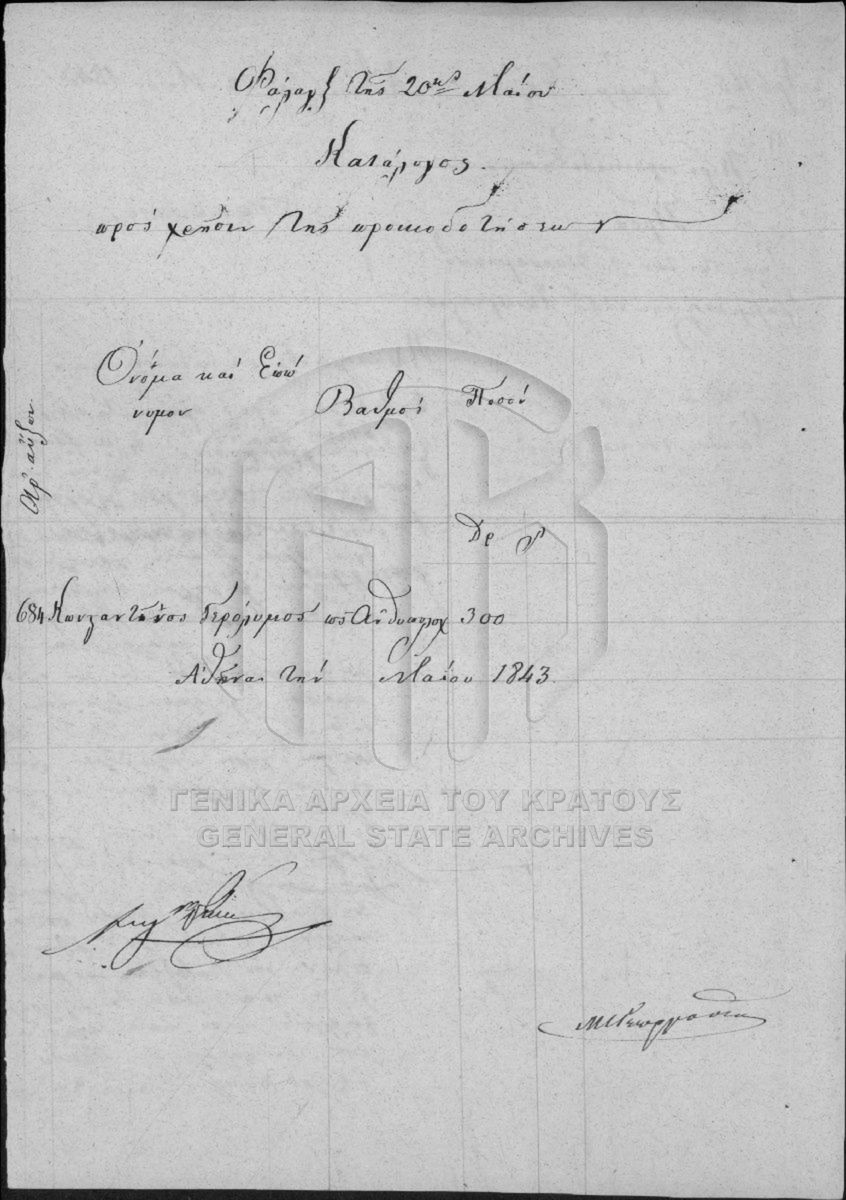 Φάλαγξ της 20ης Μαΐου
Κατάλογος
προς χρήσιν της προικοδοτήσεως
Αρ. αύξων
Όνομα και Επώ
νυμον
Βαθμοί
Ποσόν
Δρ λ
684 Κωνσταντίνος Γερόλυμος ως Ανθυπολοχ 300
Αθήναι την Μαΐου 1843
ΓΕΝΙΚΑ ΑΡΧΕΙΑ ΤΟΥ ΚΡΑΤΟΥΣ
GENERAL STATE ARCHIVES